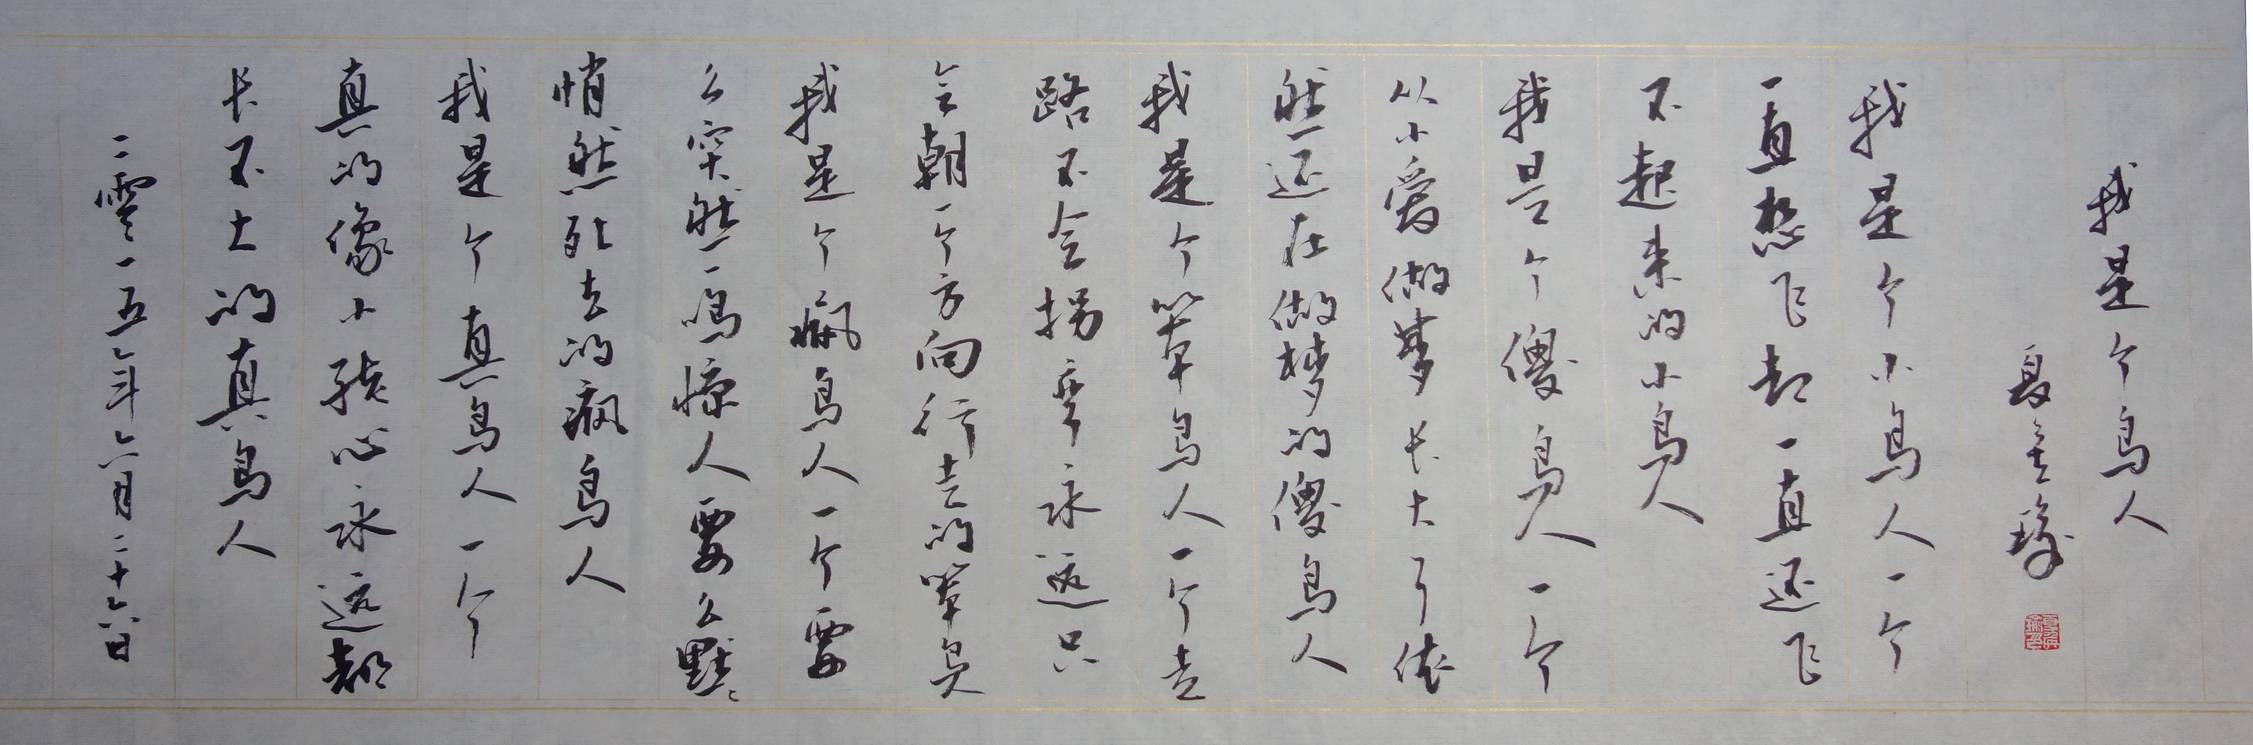 我是个鸟人
夏
我是个小鸟人一个
一直想飞却一直还飞
不起来的小鸟人
我是个傻鸟人一个
从小爱做梦长大了依
然还在做梦的傻鸟人
我是个笨鸟人一个走
路不会拐弯永远只
会朝一个方向行走的笨鸟人
我是个疯鸟人一个要
么突然一鸣惊人要么默默
悄然死去的疯鸟人
我是个真鸟人一个
真的像小孩心永远都
长不大的真鸟人
二零一五年六月二十六日